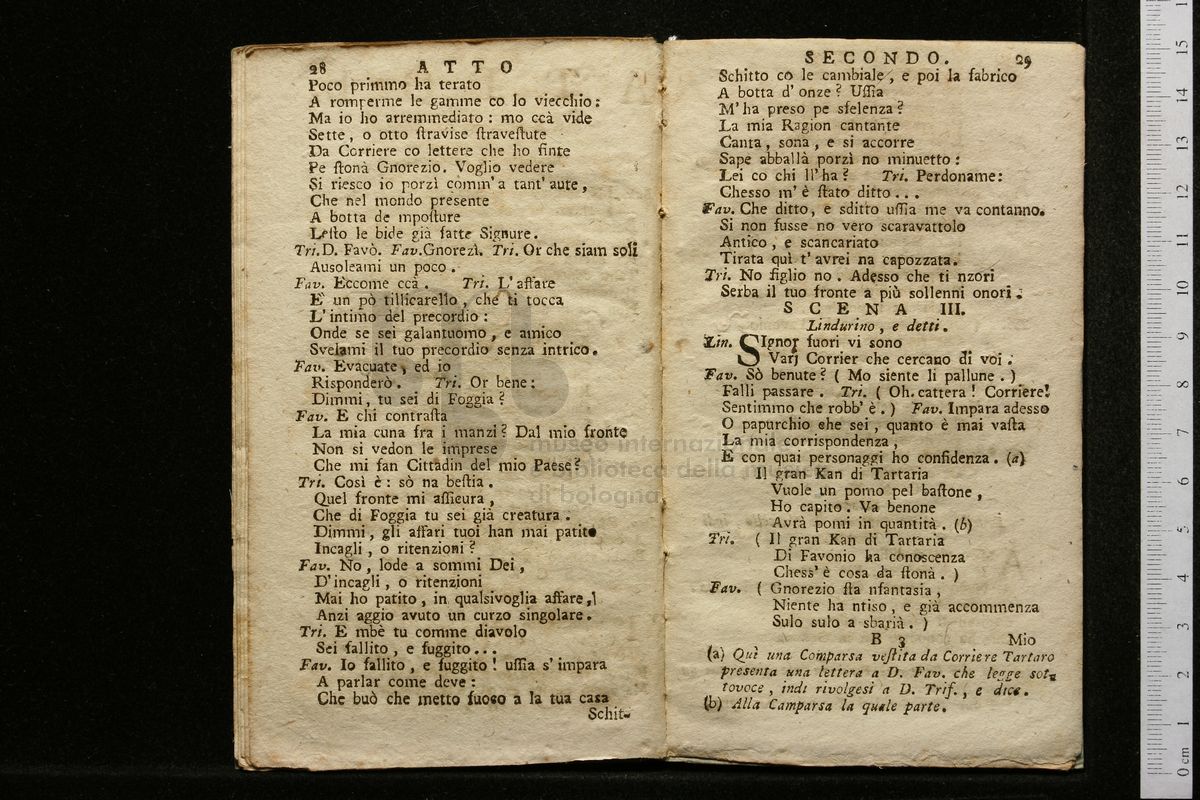 28 ATTO
Poco primmo ha terato
A romperme le gamme co lo viecchio:
Ma io ho arremmediato: mo ccà vide
Sette, o otto ſtravise ſtraveſtute
Da Corriere co lettere che ho finte
Pe ſtonà Gnorezio. Voglio vedere
Si riesco io porzì comm'a tant'aute,
Che nel mondo presente
A botta de mpoſture
Leſto le bide già fatte Signure.
Tri. D. Favò. Fav. Gnorezì. Tri. Or che siam soli
Ausoleami un poco.
Fav. Eccome ccà. Tri. L'affare
E un pò tillicarello, che ti tocca
L'intimo del precordio:
Onde se sei galantuomo, e amico
Svelami il tuo precordio senza intrico.
Fav. Evacuate, ed io
Risponderò. Tri. Or bene:
Dimmi, tu sei di Foggia?
Fav. E chi contraſta
La mia cuna fra i manzi? Dal mio fronte
Non si vedon le imprese
Che mi fan Cittadin del mio Paese?
Tri. Così è: sò na beſtia.
Quel fronte mi aſſicura,
Che di Foggia tu sei già creatura.
Dimmi, gli affari tuoi han mai patito
Incagli, o ritenzioni?
Fav. No, lode a sommi Dei,
D'incagli, o ritenzioni
Mai ho patito, in qualsivoglia affare,
Anzi aggio avuto un curzo singolare.
Tri. E mbè tu comme diavolo
Sei fallito, e fuggito...
Fav. Io fallito, e fuggito! uſſia s'impara
A parlar come deve:
Che buò che metto fuoco a la tua casa
Schit-
SECONDO. 29
Schitto co le cambiale, e poi la fabrico
A botta d'onze? Uſſia
M'ha preso pe sfelenza?
La mia Ragion cantante
Canta, sona, e si accorre
Sape abballà porzì no minuetto:
Lei co chi ll'ha? Tri. Perdoname:
Chesso m'è ſtato ditto...
Fav. Che ditto, e sditto uſſia me va contanno.
Si non fusse no vero scaravattolo
Antico, e scancariato
Tirata quì t'avrei na capozzata.
Tri. No figlio no. Adesso che ti nzori
Serba il tuo fronte a più sollenni onori.
SCENA III.
Lindurino, e detti.
Lin. SIgnor fuori vi sono
Varj Corrier che cercano di voi.
Fav. Sò benute? (Mo siente li pallune.)
Falli passare. Tri. (Oh cattera! Corriere!
Sentimmo che robb'è.) Fav. Impara adesso
O papurchio che sei, quanto è mai vaſta
La mia corrispondenza,
E con quai personaggi ho confidenza. (a)
Il gran Kan di Tartaria
Vuole un pomo pel baſtone,
Ho capito. Va benone
Avrà pomi in quantità. (b)
Tri. (Il gran Kan di Tartaria
Di Favonio ha conoscenza
Chess'è cosa da ſtonà.)
Fav. (Gnorezio ſta nfantasia,
Niente ha ntiso, e già accommenza
Sulo sulo a sbarià.)
B 3 Mio
(a) Quì una Comparsa veſtita da Corriere Tartaro
presenta una lettera a D. Fav. che legge sot-
tovoce, indi rivolgesi a D. Trif., e dice.
(b) Alla Camparsa la quale parte.
museo internazi
biblioteca della mu
di bologna
0 cm 1 2 3 4 5 6 7 8 9 10 11 12 13 14 15